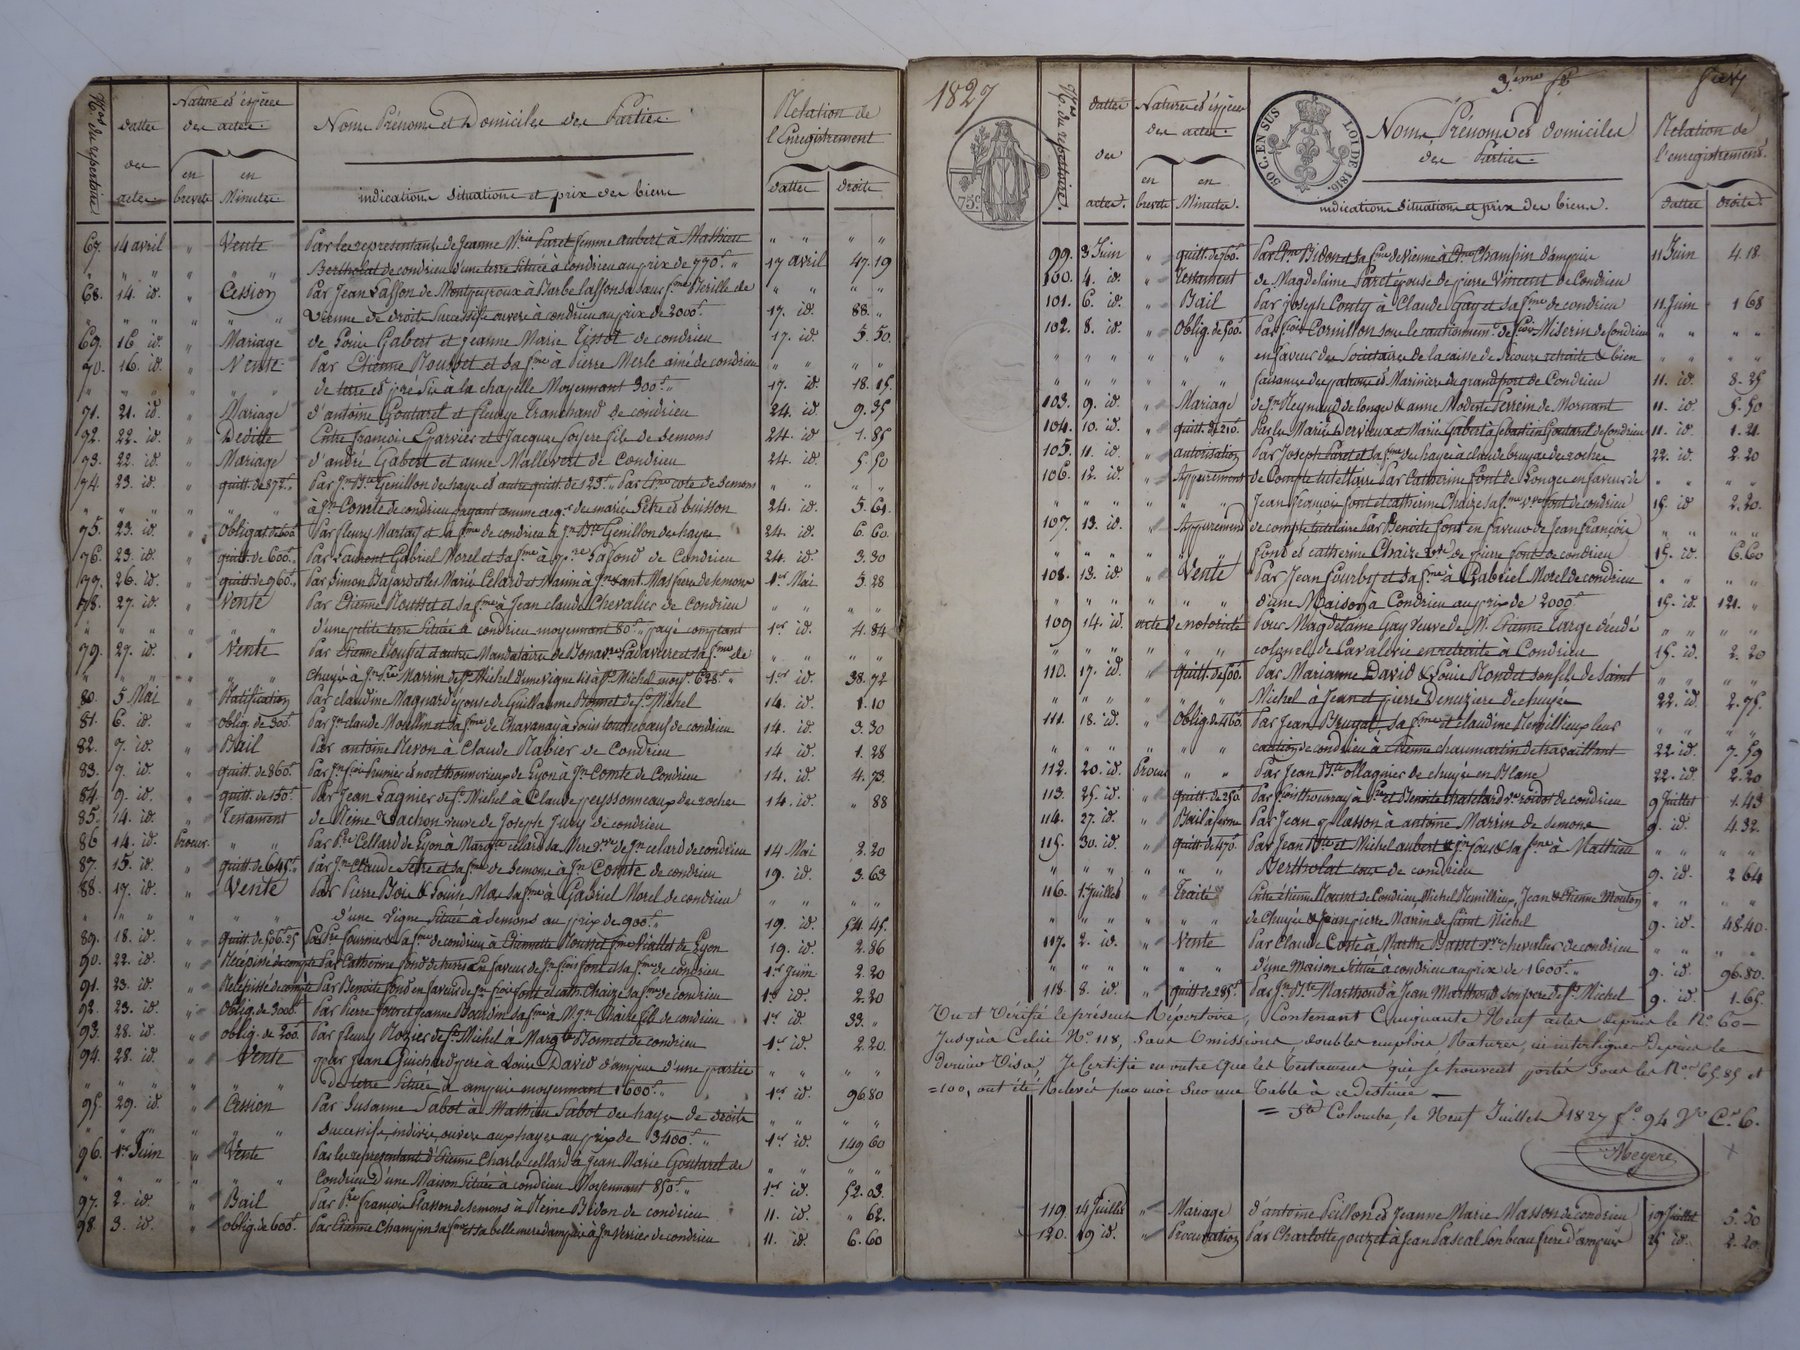 Nos du repertoire
dattes des actes
Nature et espèces des actes
en brevets
en Minutes
Noms Prénoms et Domiciles des Parties
indications situations et prix des biens
Relation de l'Enregistrement
dattes
droits
67. 14 avril " Vente Par les representants de Jeanne Mrie Paret femme aubert à Mathieu " " " "
" " " " " Bertholat de condrieu d'une terre située à condrieu au prix de 770f " 17 avril 47.19
68. 14. id. " Cession Par Jean Lasson de à Barbe Lasson sa sœur fme de " " " "
" " " " " Vienne de droits successifs ouverts à condrieu au prix de 2000f. 17. id. 88. "
69. 16 id. " Mariage de Louis Gabert et Jeanne Marie Tissot de condrieu 17. id. 5.50.
70. 16. id. " Vente Par Etienne Rousset et sa fme à Pierre Merle ainé de condrieu " " " "
" " " de terre et pré sis à la chapelle Moyennant 300f " 17. id. 18.15.
71. 21. id. " Mariage d'antoine Goutarel et fleurye Tranchand de condrieu 24. id. 9.35
72. 22. id. " Deditte Entre françois Garnier et Jacques fils de Semons 24. id. 1.85
73. 22. id. " Mariage d'andré Gabert et anne Mallevert de Condrieu 24. id. 5.50
74. 23. id. " quitt. de 872f. Par Jn Bte Genillon des hayes et autre quitt. de 123f. " Par de Semons " " " "
" " " à Jn Comte de condrieu payant comme acqr des mariés Petre et buisson 24. id. 5.61.
75. 23. id. " Obligat de 600f Par fleury et sa fme de condrieu à Jn Bte Genillon des hayes 24. id. 6.60.
76. 23. id. " quitt. de 600f. Par Laurent Gabriel Morel et sa fme à Lafond de Condrieu 24. id. 3.30
77. 26. id. " quitt. de 960f. Par Simon et les Mariés Celard et à Jn de Semons 1er Mai 5.28
78. 27. id. " Vente Par Etienne Rousset et sa fme à Jean claude Chevalier de Condrieu " " " "
" " " " " d'une petite terre située à condrieu moyennant 80f " payé comptant 1er id. 4.84
79. 27. id. " Vente Par Etienne et autre Mandataire de Bonavre et sa fme de " " " "
" " " Chuyé à Jn Marrin de St Michel d'une vigne sis à St Michel moyt 628f " 1er id. 38.72
80. 5 Mai " Ratification Par claudine Magnard épouse de Guillaume Bonnet de St Michel 14. id. 1.10
81. 6. id. " oblig. de 300f Par Jn claude Moullin et sa fme de Chavanay à Louis de condrieu 14. id. 3.30
82. 7. id. " Bail Par antoine à Claude Rabier de Condrieu 14 id. 1.28
83. 7. id. " quitt. de 860f. Par Jn de Lyon à Jn Comte de Condrieu 14. id. 4.73.
84. 9. id. " quitt. de 150f Par Jean Lagnier de St Michel à Claude peyssonneaux des roches 14. id. " 88
85. 14. id. " Testament de Reine Vachon veuve de Joseph Jury de condrieu
86 14. id. Procur. " " Par Pre Cellard de Lyon à Margte celard sa Mere vve de Jn celard de condrieu 14 Mai 2.20
87. 15. id. " quitt de 645f. " Par Jn Claude Petre et sa fme de Semons à Jn Comte de condrieu 19. id. 3.63
88. 17. id. " Vente Par Pierre & Louise Mas sa fme à Gabriel Morel de condrieu " " " "
" " " " " d'une Vigne située à Semons au prix de 900f. " 19. id. 54.45.
89. 18. id. " quitt. de 506f.25 Par Pre fournier & sa fme de condrieu à Etiennette Rousset fme de Lyon 19. id. 2.86
90. 22. id. " Récépissé de compte Par Catherine font de en faveur de Jn fçois font et sa fme de condrieu 1er Juin 2.20
91. 23. id. " Récépissé de compte Par Benoite font en faveur de Jn fçois font et cath. Chaize sa fme de condrieu 1er id. 2.20
92. 23. id. " Oblig. de 3000f Par Pierre font et Jeanne sa fme à Mr Jn Chaize fils de condrieu 1er id. 33. "
93. 28. id. " oblig. de 200f Par fleury Rozier de St Michel à Margte Bonnet de condrieu 1er id. 2.20
94. 28. id. " Vente par Jean Guichard pere à Louis David d'ampuis d'une partie " " " "
" " " de terre située à ampuis moyennant 1600f. " 1er id. 96.80
95. 29. id. " Cession Par Susanne Sabot à Mathieu Sabot des hayes de droits " " " "
" " " " " successifs, indivis, ouverts aux hayes au prix de 3400f. " 1er id. 149.60
96. 1er Juin " Vente Par les representants d'Etienne Charles cellard à Jean Marie Goutarel de " " " "
" " " " " Condrieu d'une Maison située à condrieu Moyennant 850f. " 1er id. 52.03.
97. 2. id. " Bail Par Pre françois Plasson de Semons à Reine Bidon de condrieu 11. id. " 62.
98. 3. id. " oblig. de 600f. Par Etienne Champin sa fme et sa belle mere d'ampuis à Jn Verrier de condrieu 11. id. 6.60
1827
75c
50 C. EN SUS LOI DE 1816.
3eme fo
Nos du repertoire
dattes des actes.
Natures et espèces des actes.
en brevets
en Minutes.
Noms Prénoms et domiciles des Parties.
indications situations et prix des biens.
Relation de l'enregistrement.
dattes
droits.
99. 3 Juin " quitt. de 760f. Par Bidon et sa fme de Vienne à Champin d'ampuis 11 Juin 4.18.
100. 4. id. " Testament de Magdelaine Paret épouse de pierre Vincent de Condrieu
101. 6. id. " Bail Par Joseph Conty à Claude Gay et sa fme de condrieu 11 Juin 1.68
102. 8. id. " Oblig. de 500f. Par fçois Cornillon sous le cautionnemt de fçois Miserin de Condrieu " " " "
" " " " " en faveur des Societaires de la caisse de secours retraite & bien " " " "
" " " " " faisance des patrons et Mariniers du grand port de Condrieu 11. id. 8.25
103. 9. id. " Mariage de Jn Reynaud de longes & anne Modeste Perrein de Mornant 11. id. 5.50
104. 10. id. " quitt. de 210f. Par les Mariés Vervieux et Marie Gabert à Sebastien Goutarel de Condrieu 11. id. 1.21.
105. 11. id. " autorisation Par Joseph Paret et sa fme des hayes à claude bruyas des roches 22. id. 2.20
106. 12. id. " Appurement de Compte tutellaire Par Catherine font de Longes en faveur de " " " "
" " " " " Jean françois font et catherine Chaize sa fme vve font de condrieu 15. id. 2.20.
107. 13. id. " Appurement de compte tutelaire Par Benoite font en faveur de Jean françois " " " "
" " " " " font et catherine Chaize vve de pierre font de condrieu 15. id. 6.60
108. 13. id. " Vente Par Jean fourbos et sa fme à Gabriel Morel de condrieu " " " "
" " " " " d'une Maison à Condrieu au prix de 2000f 15. id. 121. "
109 14. id. acte de notorieté Pour Magdelaine Gay Veuve de Mr. Etienne Large décédé " " " "
" " " " " colonel de Cavalerie en retraite à Condrieu 15. id. 2.20
110. 17. id. " Quitt. de 500f. Par Marianne David & Louis son fils de Saint " " " "
" " " " " Michel à Jean et pierre Denuziere de chuyés 22. id. 2.75.
111. 18. id. " Oblig. de 460f. Par Jean Brugal, sa fme et claudine Remillieux leur " " " "
" " " " " caution de condrieu à Etienne chaumartin de travaillant 22. id. 7.59
112. 20. id. Procur " " Par Jean Bte ollagnier de chuyés en Blanc 22. id. 2.20
113. 25. id. " quitt. de 250f Par fçois thouray à et Benoite chatelard de condrieu 9 Juillet 1.43
114. 27. id. " Bail à ferme Par Jean Plasson à antoine Marrin de Semons 9. id. 4.32.
115. 30. id. " quitt. de 470f. Par Jean Bte et Michel aubert & Jn & sa fme à Mathieu " " " "
" " " " " Bertholat tous de condrieu 9. id. 2.64
116. 1 Juillet " Traité Entre étienne Mouns de Condrieu, Michel Remillieux, Jean & Etienne Mouton " " " "
" " " " " de Chuyés & Jean pierre Marin de Saint Michel 9. id. 48.40.
117. 2. id. " Vente Par Claude Coste à Marthe vve chevalier de condrieu " " " "
" " " " " d'une Maison située à condrieu au prix de 1600f. " 9. id. 96.80.
118. 8. id. " quitt de 285f Par Jn Bte Marthoud à Jean Marthoud son pere de St Michel 9. id. 1.65.
Vu et Vérifié le présent Repertoire, Contenant Cinquante Neuf actes depuis le No 60 —
Jusqu'à Celui No. 118, Sans Omissions, doubles emplois Ratures, ni interlignes depuis le —
dernier Visa; Je Certifie en outre que les testaments qui se trouvent portés sous les Nos 65. 85 et
=100, ont été Relevés par moi Sur une Table à ce destinée —
= Ste Colombe, le Neuf Juillet 1827 fo. 94 Vo Ce. 6.
Meyere
119. 14 Juillet " Mariage d'antoine Peillon et Jeanne Marie Masson de condrieu 19 Juillet 5.50
120. 19 id. " Procuration Par Charlotte à Jean Pascal son beau frere d'ampuis 25 id. 2.20